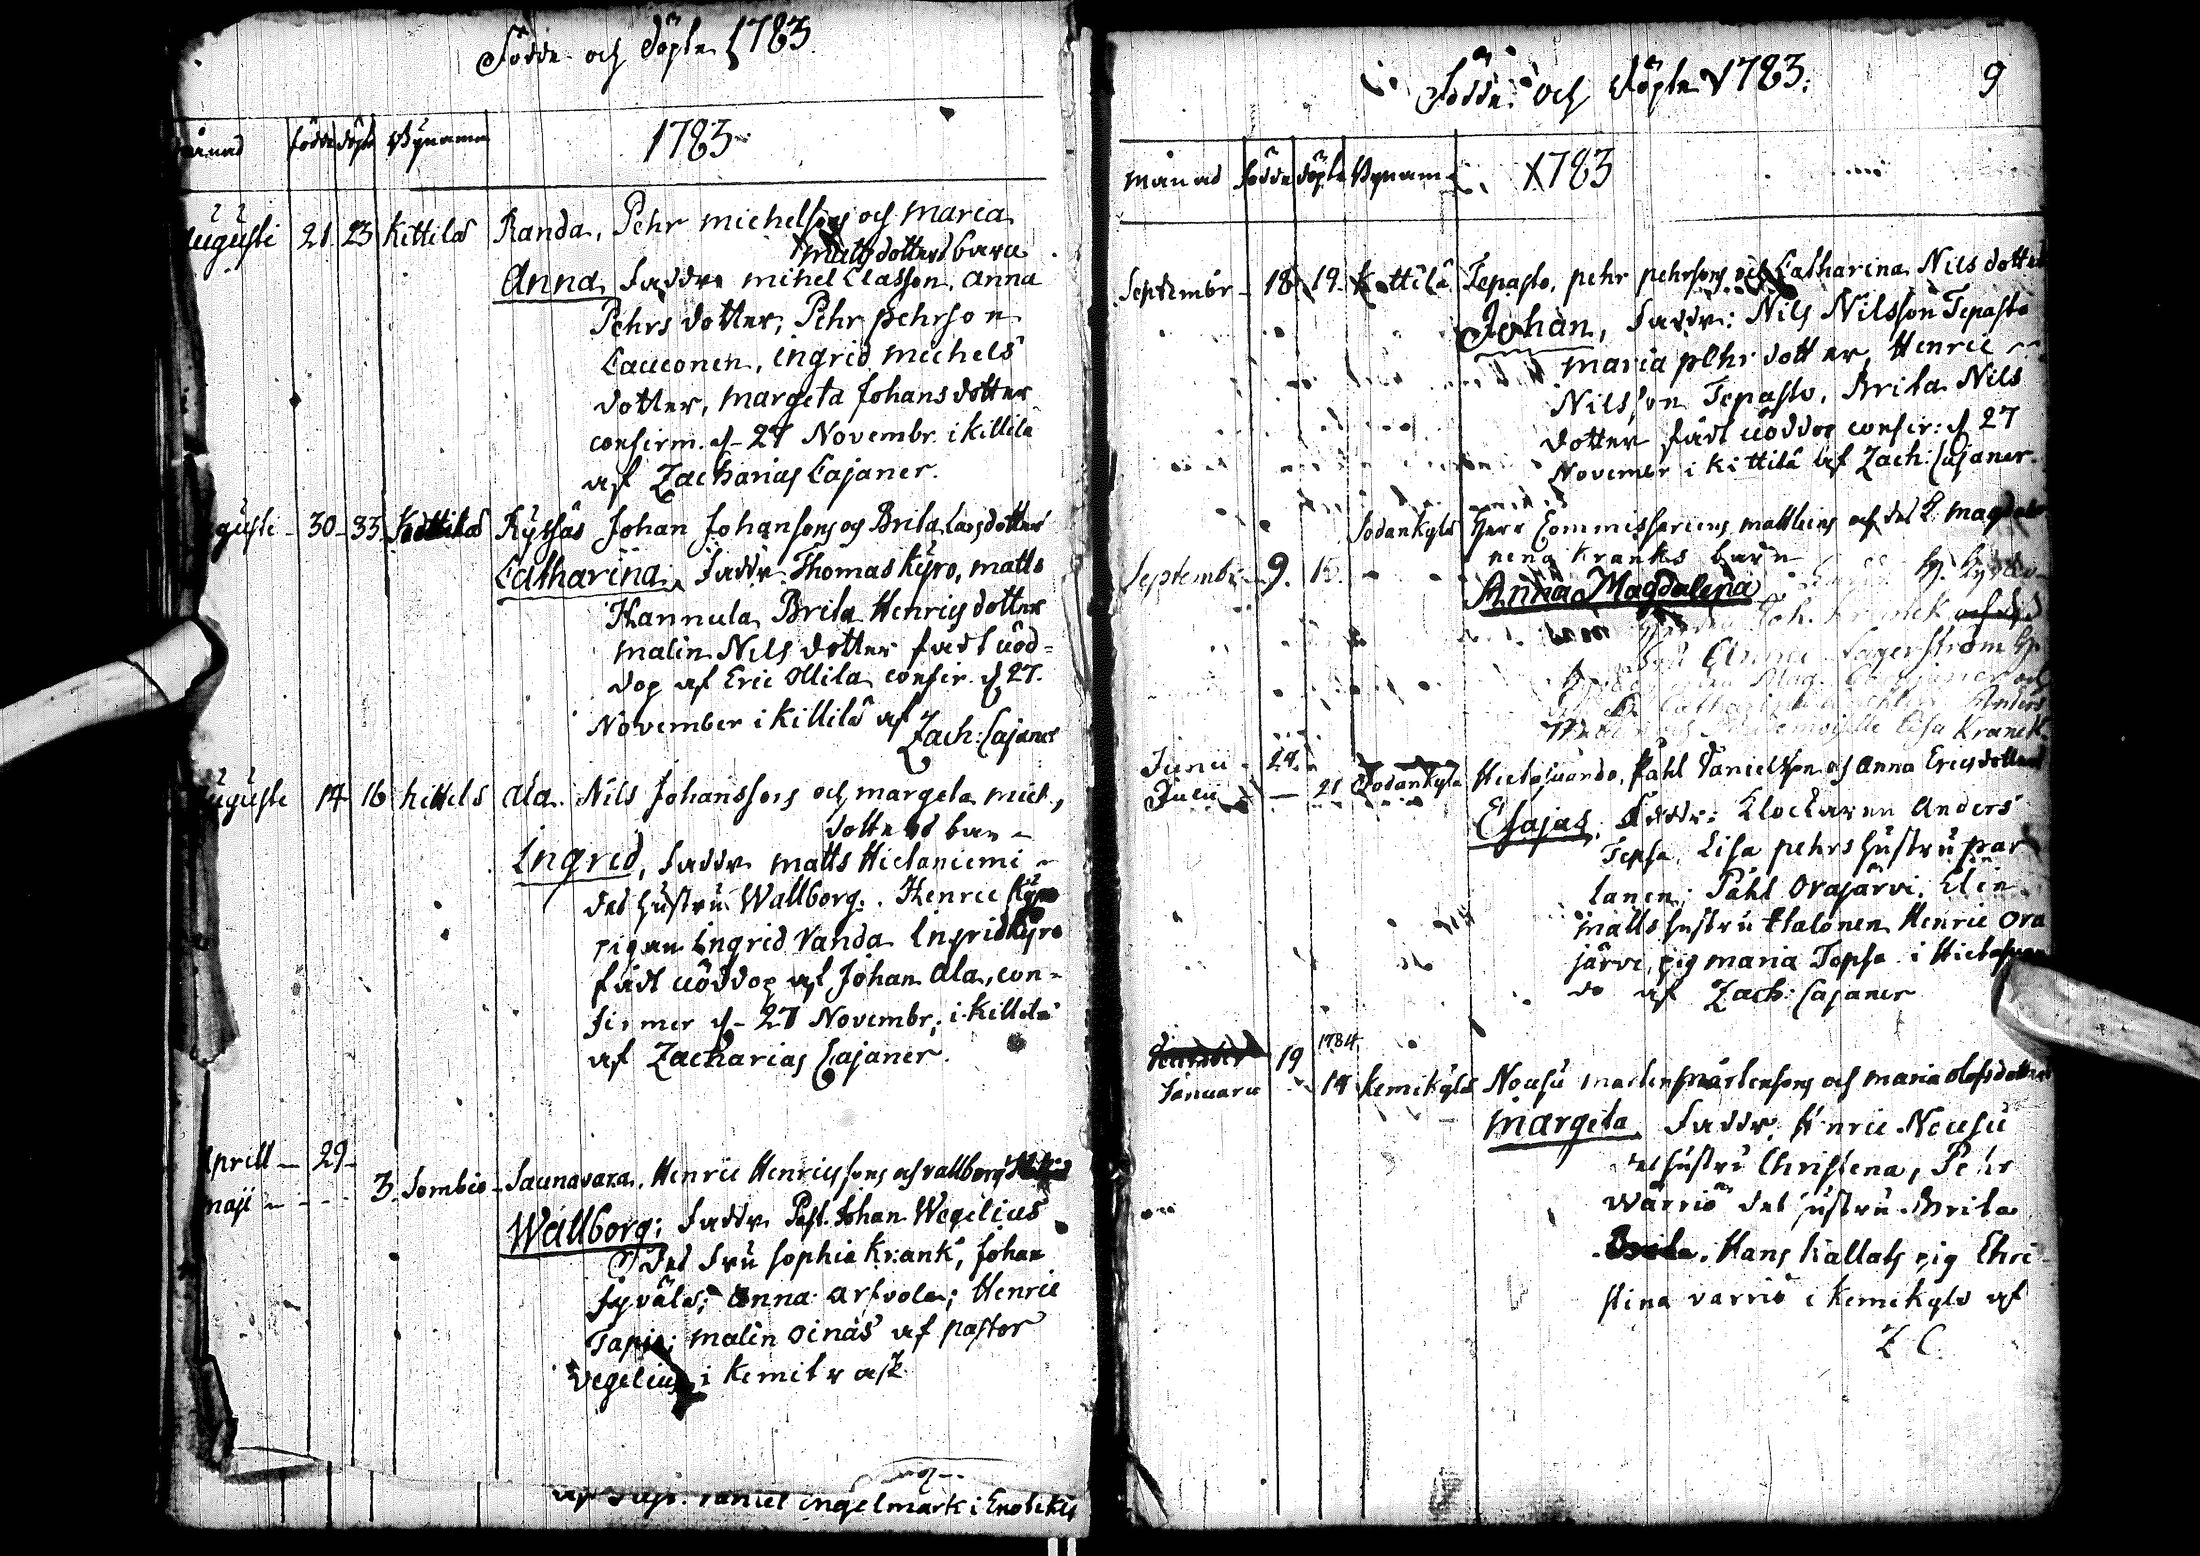 Födde och döpte 1783
månad födde döpte Bynamn 1783
Augusti 21 23 Kittilä Randa, Pehr michelsons och maria
matts dotters barn
Anna faddr mihel Classon, Anna
Pehrs dotter, Pehr pehrson
Laucconen, ingrid michels
dotter, margeta Johansdotter
confirm. d- 27 Novembr. i Kittilä
af Zacharias Cajaner.
Augusti - 30 - 33 Kittilä Johan Johansons och Brita Larsdotter
Catharina, faddr. Thomas Kyro, matts
Hannula, Brita Henrics dotter
malin Nils dotter fådt nöd-
dop af Eric Ollila confir. d 27.
November i Kittilä af
Zach: Cajaner
Augusti 14 16 kittilä Ala. Nils Johanssons och margeta mich,
dotters barn
Ingrid, faddr matts Hietaniemi
des hustru Wallborg. Henric Kyro
pigan Ingrid Vanda Ingrid Kyro
fådt nöddop af Johan Ala, con-
firmer d- 27 Novembr, i Kittilä
af Zacharias Cajaner.
Aprill - 29 -
maji - - - 3. Sombio - Saunavara, Henric Henricssons och vallborg
Wallborg: faddr Past. Johan Wegelius
Des fru sophia Krank, Johan
Anna Arfvola; Henric
Tapio; malin Oinas af pastor
Vegelius i Kemitrask
af Daniel ingelmark i Enotekis
Födde och döpte 1783. 9
månad födde döpte Bynamn 1783
Septembr - 18 19. Kittilä Tepasto, pehr pehrsons och Catharina Nils dotter
Johan, faddr: Nils Nilsson Tepasto
maria pehr dotter, Henric
Nilsson Tepasto, Brita Nils
dotter fådt nöddop confir: d 27
November i Kittilä af Zach: Cajaner.
Sodankylä Herr Commissariens mattheus och des
Krankes barn
Septembr - 9. 15.
Anna Magdalena
Joh. Kranck och des
Anna Lagerström
Mag. Cajaner och
Catharina Anders
Lisa Kranck
Junii - 24.
Julii - 21 Sodankylä Hietasuando, Påhl Danielsson och Anna Ericsdotter
Esajas, Faddr: Klockaren Anders
Tepsa, Lisa pehrs hustru par
tanen; Påhl Orajärvi, Elin
matts hustru Halonen Henric Ora
järvi, pig maria Tepsa i Hietasuan
do af Zach: Cajaner
19 1784
Januarii - 14 Kemikylä Nousu mårten mårtensons och maria olofsdotter
Margeta, faddr. Henric Nousu
des hustru Christina, Pehr
Wärriö des hustru Brita
Brita, Hans Kallats pig Chri
stina varriö i Kemikylä af
Z C.